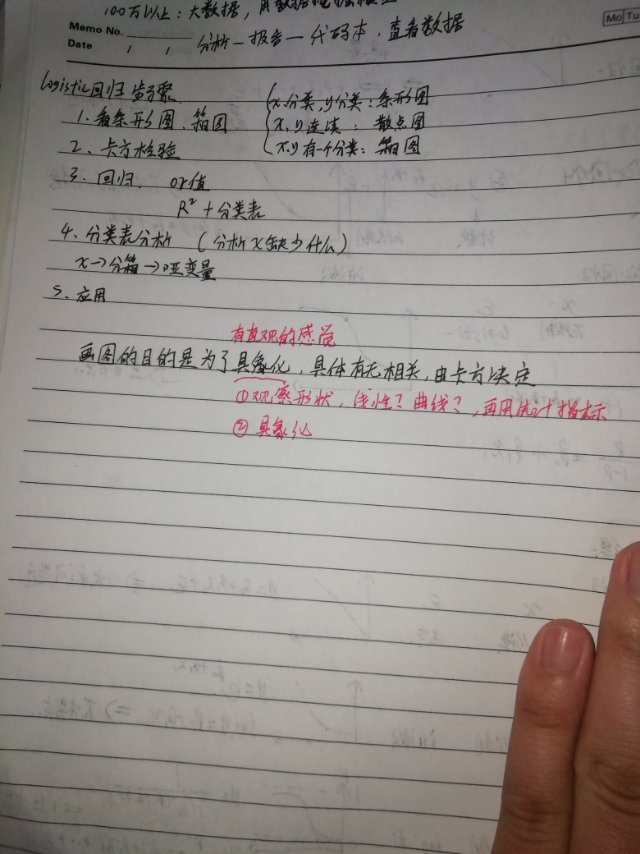 100万以上：大数据，用数据挖掘
Memo No.
Mo Tu
Date / / 分析一报告一代码本，查看数据
logistic回归步骤
1、看条形图、箱图
2、卡方检验
3、回归、or值
R²+分类表
4、分类表分析（分析x缺少什么）
x→分箱→哑变量
5、应用
x分类，y分类：条形图
x、y连续：散点图
x、y有一个分类：箱图
有直观的感觉
画图的目的是为了具象化，具体有无相关，由卡方决定
①观察形状，线性？曲线？，再用统计指标
②具象化